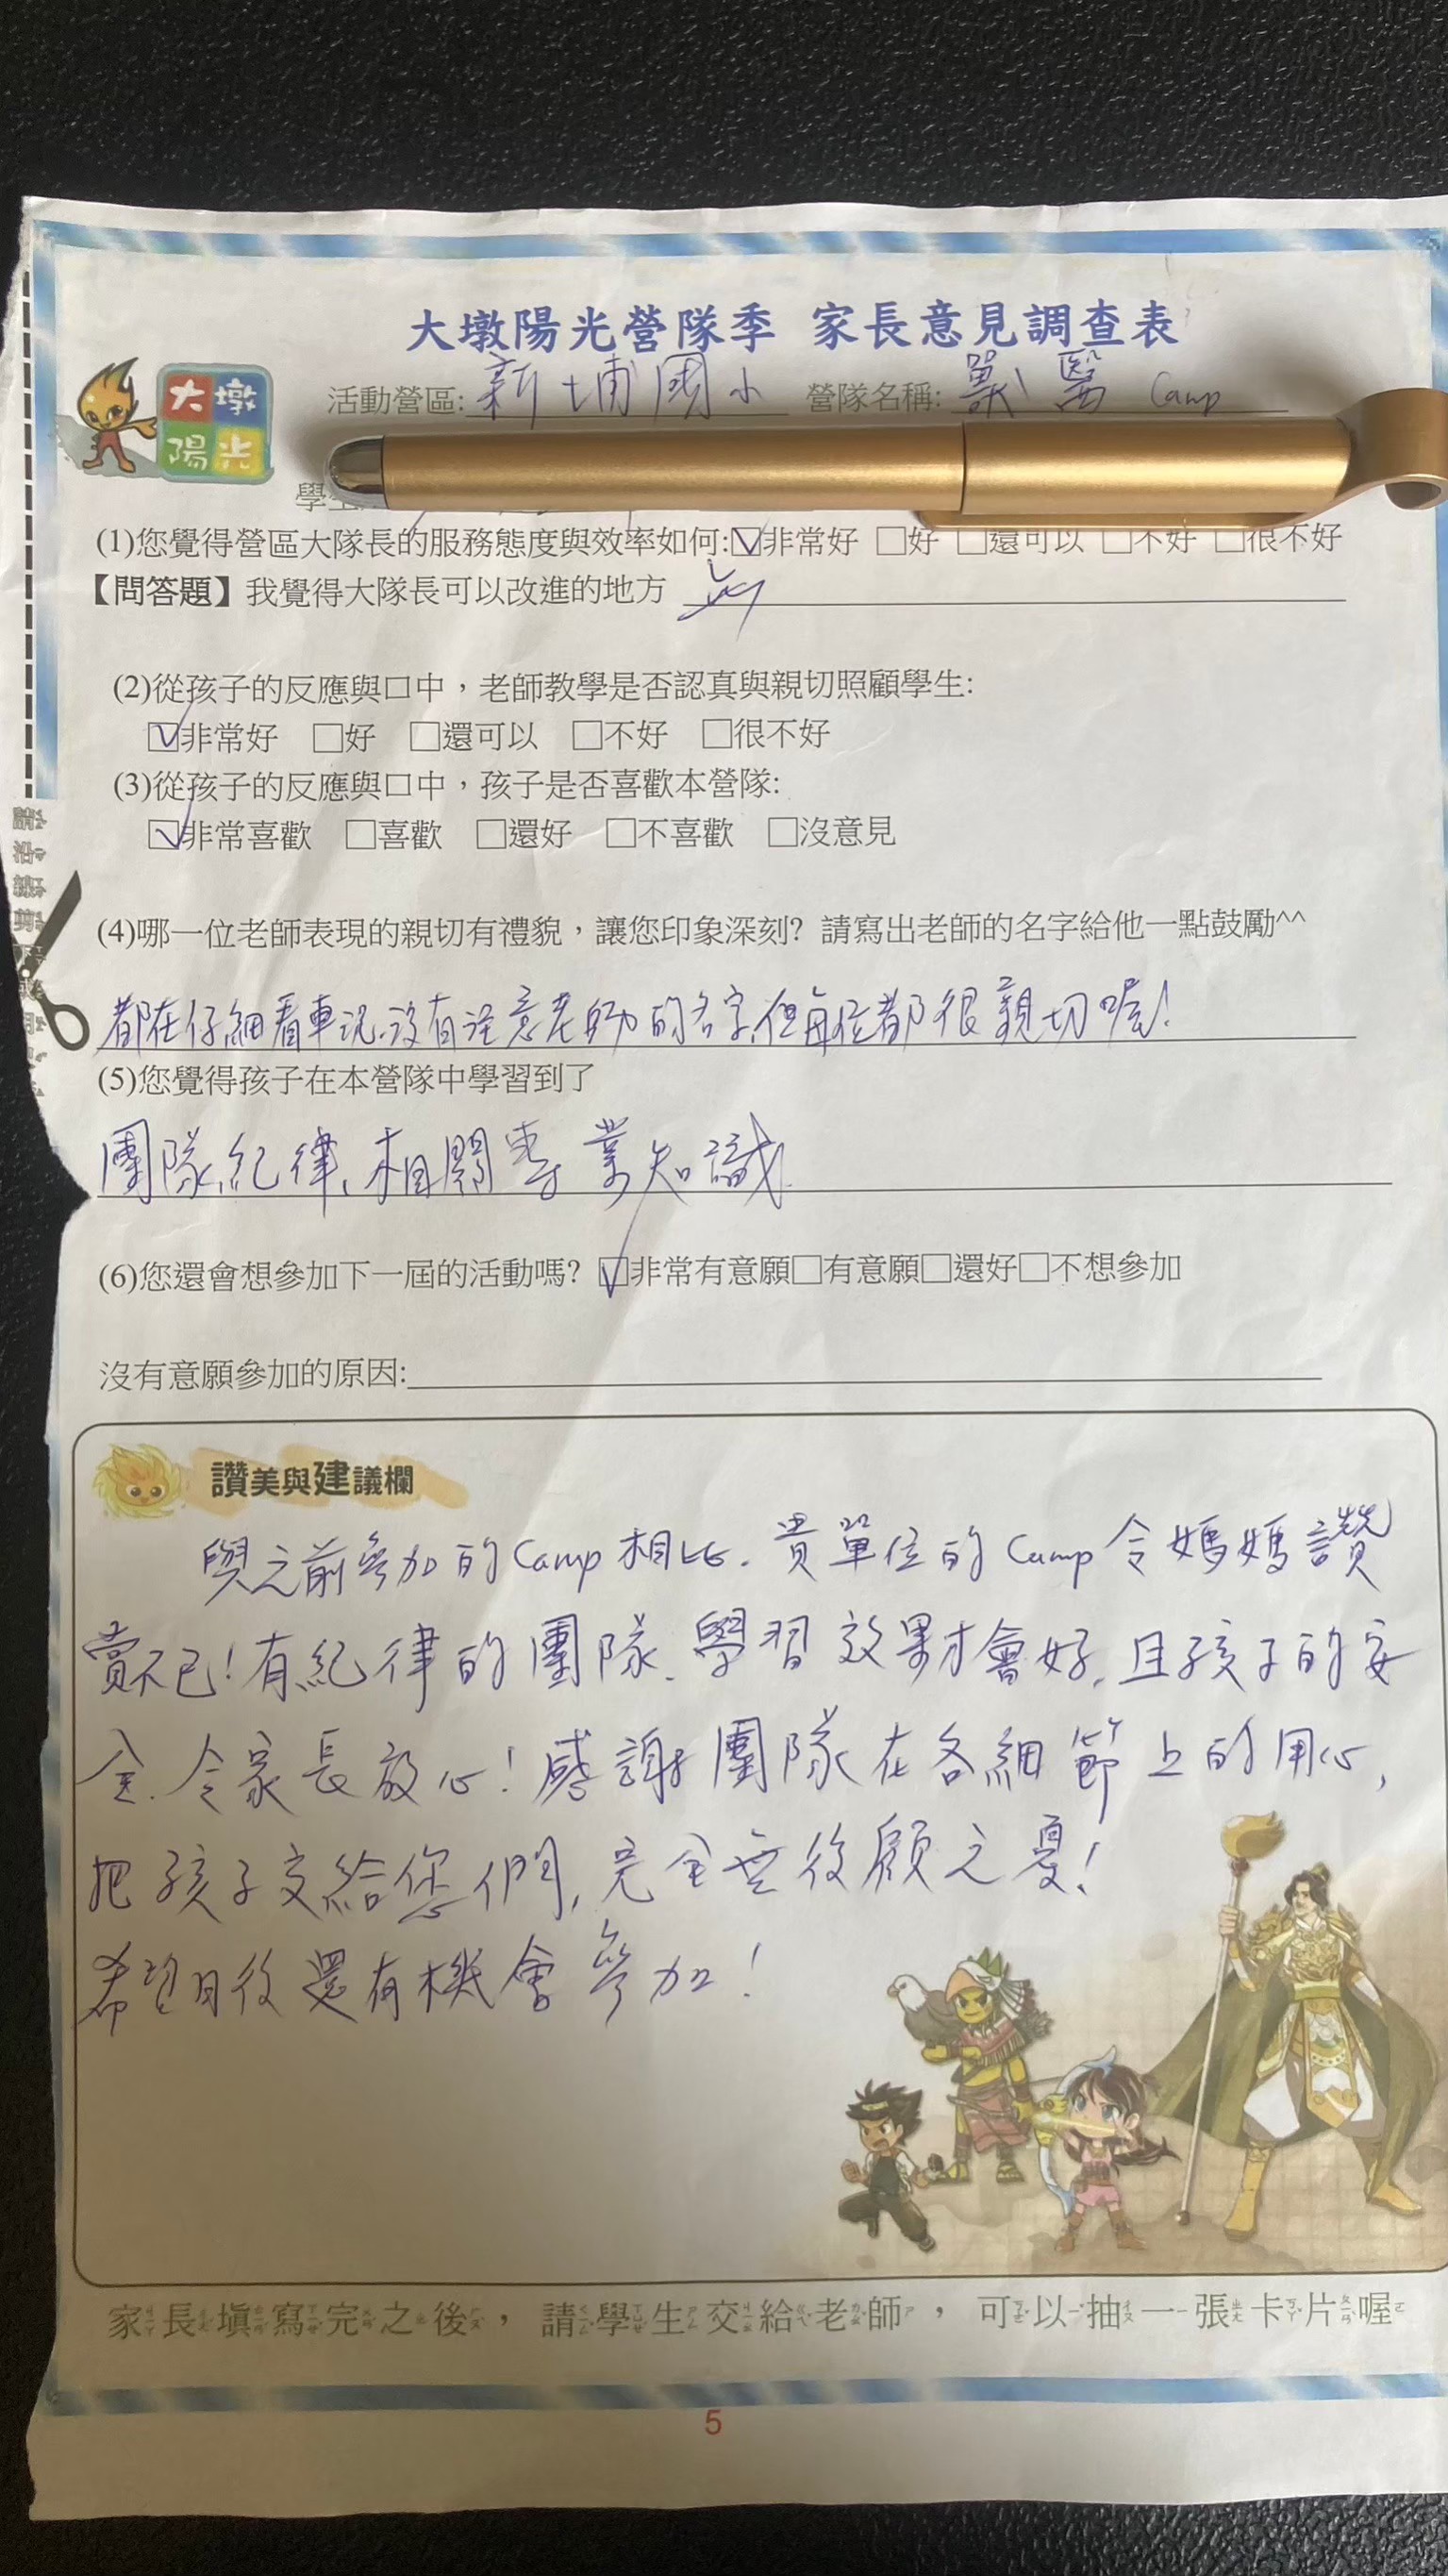 大墩陽光營隊季 家長意見調查表
大墩
陽光
活動營區:新埔國小 營隊名稱:獸醫Camp
學生
(1)您覺得營區大隊長的服務態度與效率如何:☑非常好 □好 □還可以 □不好 □很不好
【問答題】我覺得大隊長可以改進的地方 無
(2)從孩子的反應與口中，老師教學是否認真與親切照顧學生:
☑非常好 □好 □還可以 □不好 □很不好
(3)從孩子的反應與口中，孩子是否喜歡本營隊:
☑非常喜歡 □喜歡 □還好 □不喜歡 □沒意見
(4)哪一位老師表現的親切有禮貌，讓您印象深刻? 請寫出老師的名字給他一點鼓勵^^
都在仔細看車況.沒有注意老師的名字,但每位都很親切喔!
(5)您覺得孩子在本營隊中學習到了
團隊、紀律、相關專業知識.
(6)您還會想參加下一屆的活動嗎? ☑非常有意願□有意願□還好□不想參加
沒有意願參加的原因:
請沿線剪下
讚美與建議欄
與之前參加的Camp相比.貴單位的Camp令媽媽讚
賞不已!有紀律的團隊.學習效果才會好,且孩子的安
全.令家長放心!感謝團隊在各細節上的用心,
把孩子交給您們,完全無後顧之憂!
希望日後還有機會參加!
家長填寫完之後，請學生交給老師，可以抽一張卡片喔
5